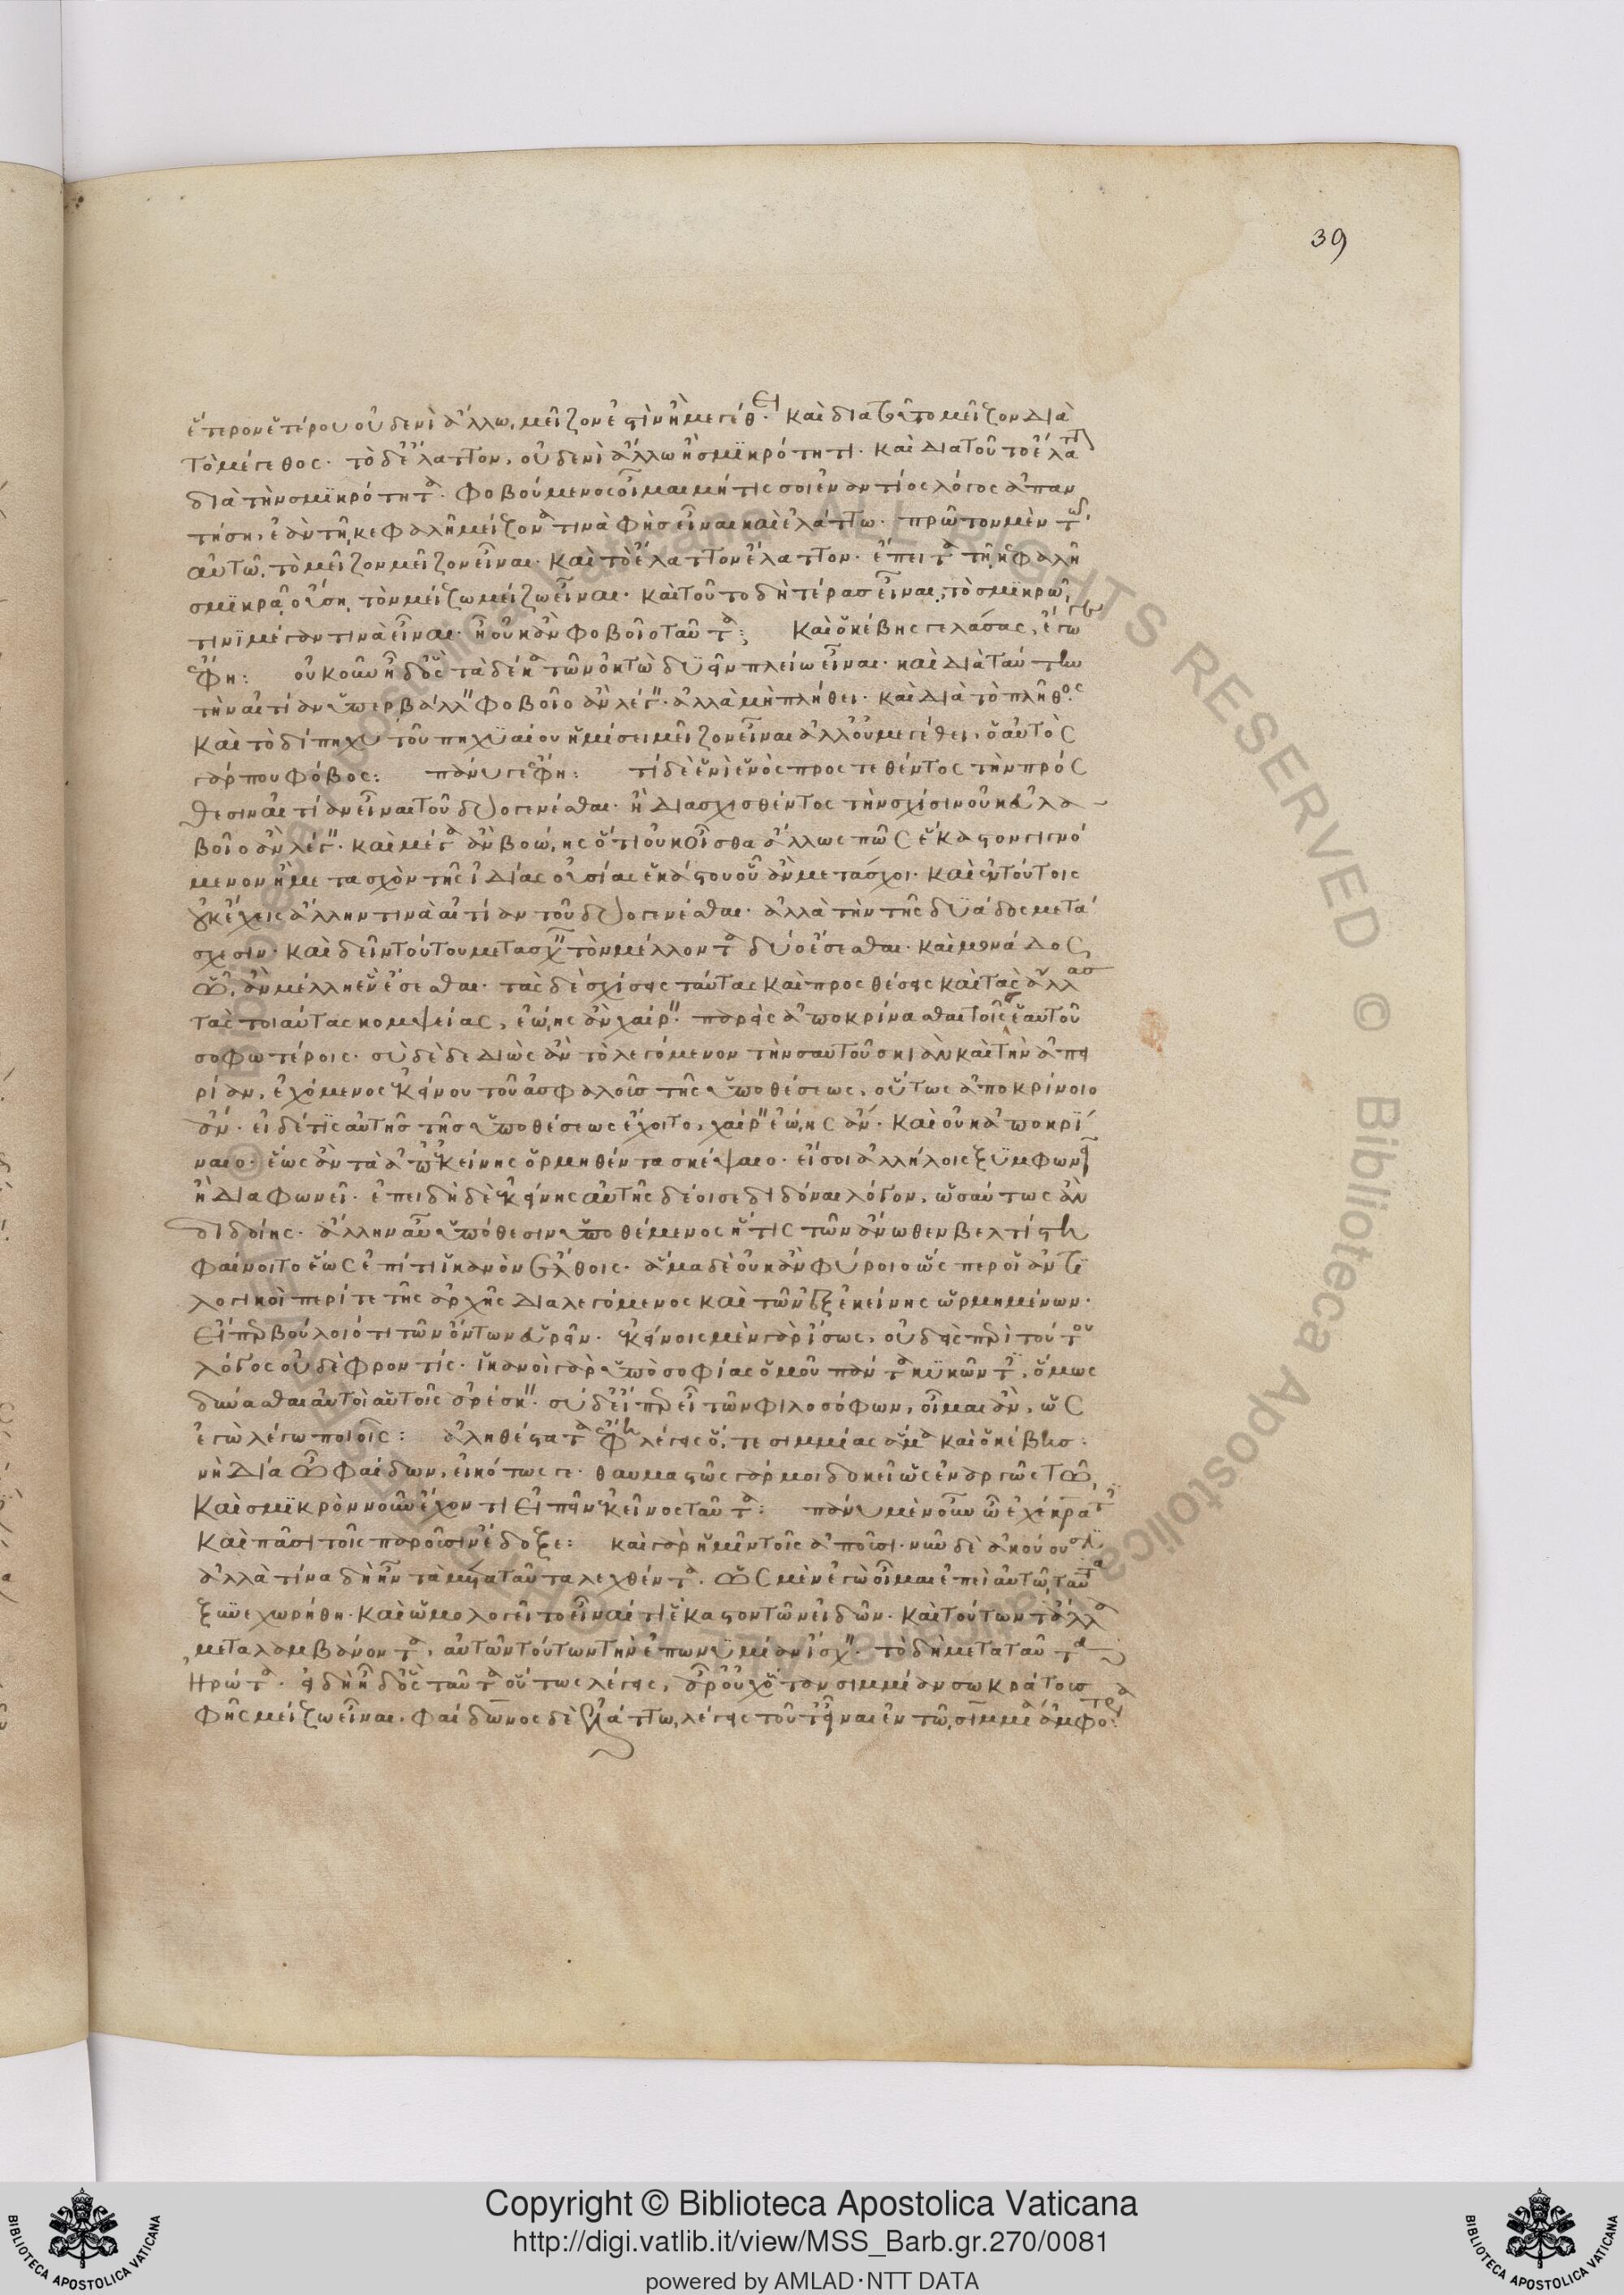 39
ἕτερον ἑτέρου οὐδενὶ ἄλλω, μεῖζόν ἐστιν ἢ μεγέθει· καὶ διὰ τοῦτο μεῖζον διὰ
τὸ μέγεθος· τὸ δὲ ἔλαττον, οὐδενὶ ἄλλω ἢ σμικρότητι· καὶ διὰ τοῦτο ἔλαττον
διὰ τὴν σμικρότητα· φοβούμενος οἶμαι μή τίς σοι ἐναντίος λόγος ἀπαν
τήση, ἐὰν τῆ κεφαλῆ μείζονά τινα φῆς εἶναι καὶ ἐλάττω· πρῶτον μὲν τῶ
αὐτῶ, τὸ μεῖζον μεῖζον εἶναι· καὶ τὸ ἔλαττον ἔλαττον· ἔπειτα τῆ κεφαλῆ
σμικρᾶ οὔση τὸν μείζω μείζω εἶναι· καὶ τοῦτο δὴ τέρας εἶναι, τὸ σμικρῶ
τινι μέγαν τινὰ εἶναι· ἢ οὐκ ἂν φοβοῖο ταῦτα; καὶ ὁ κέβης γελάσας, ἔγωγε
ἔφη: οὐκοῦν ἦ δ' ὃς τὰ δέκα τῶν ὀκτὼ δυεῖν πλείω εἶναι· καὶ διὰ ταύτην
τὴν αἰτίαν ὑπερβάλλειν φοβοῖο ἂν λέγειν· ἀλλὰ μὴ πλήθει· καὶ διὰ τὸ πλῆθος
καὶ τὸ δίπηχυ τοῦ πηχυαίου ἡμίσει μεῖζον εἶναι ἀλλ' οὐ μεγέθει, ὁ αὐτὸς
γάρ που φόβος: πάνυ γε ἔφη: τί δὲ ἑνὶ ἑνὸς προστεθέντος τὴν πρόσ
θεσιν αἰτίαν εἶναι τοῦ δύο γενέσθαι· ἢ διασχισθέντος τὴν σχίσιν οὐκ εὐλα
βοῖο ἂν λέγειν· καὶ μέγα ἂν βοώης ὅτι οὐκ οἶσθα ἄλλως πῶς ἕκαστον γιγνό
μενον ἢ μετασχὸν τῆς ἰδίας οὐσίας ἑκάστου οὗ ἂν μετάσχοι· καὶ ἐν τούτοις
οὐκ ἔχεις ἄλλην τινὰ αἰτίαν τοῦ δύο γενέσθαι· ἀλλὰ τὴν τῆς δυάδος μετά
σχεσιν· καὶ δεῖν τούτου μετασχεῖν τὸν μέλλοντα δύο ἔσεσθαι· καὶ μονάδος
ὃ ἂν μέλλη ἓν ἔσεσθαι· τὰς δὲ σχίσεις ταύτας καὶ προσθέσεις καὶ τὰς ἄλλας
τὰς τοιαύτας κομψείας, ἐώης ἂν χαίρειν· παρεὶς ἀποκρίνασθαι τοῖς ἑαυτοῦ
σοφωτέροις· σὺ δὲ δεδιὼς ἂν τὸ λεγόμενον τὴν σαυτοῦ σκιὰν καὶ τὴν ἀπει
ρίαν, ἐχόμενος ἐκείνου τοῦ ἀσφαλοῦς τῆς ὑποθέσεως, οὕτως ἀποκρίνοιο
ἄν· εἰ δέ τις αὐτῆς τῆς ὑποθέσεως ἔχοιτο, χαίρειν ἐώης ἄν· καὶ οὐκ ἀποκρί
ναιο· ἕως ἂν τὰ ἀπ' ἐκείνης ὁρμηθέντα σκέψαιο· εἴ σοι ἀλλήλοις ξυμφωνεῖ
ἢ διαφωνεῖ· ἐπειδὴ δὲ ἐκείνης αὐτῆς δέοι σε διδόναι λόγον, ὡσαύτως ἂν
διδοίης· ἄλλην αὖ ὑπόθεσιν ὑποθέμενος ἥτις τῶν ἄνωθεν βελτίστη
φαίνοιτο ἕως ἐπί τι ἱκανὸν ἔλθοις· ἅμα δὲ οὐκ ἂν φύροιο ὥσπερ οἱ ἀντι
λογικοὶ περί τε τῆς ἀρχῆς διαλεγόμενος καὶ τῶν ἐξ ἐκείνης ὡρμημένων·
εἴπερ βούλοιό τι τῶν ὄντων εὑρεῖν· ἐκείνοις μὲν γὰρ ἴσως, οὐδεὶς περὶ τούτου
λόγος οὐδὲ φροντίς· ἱκανοὶ γὰρ ὑπὸ σοφίας ὁμοῦ πάντα κυκῶντες, ὅμως
δύνασθαι αὐτοὶ αὑτοῖς ἀρέσκειν· σὺ δ' εἴπερ εἶ τῶν φιλοσόφων, οἶμαι ἂν, ὡς
ἐγὼ λέγω ποιοῖς: ἀληθέστατα ἔφη λέγεις ὅ, τε σιμμίας ἅμα καὶ ὁ κέβης:
νὴ δία ὦ φαίδων, εἰκότως γε· θαυμαστῶς γάρ μοι δοκεῖ ὡς ἐναργῶς τῶ
καὶ σμικρὸν νοῦν ἔχοντι εἰπεῖν ἐκεῖνος ταῦτα: πάνυ μὲν οὖν ὦ ἐχέκρατες
καὶ πᾶσι τοῖς παροῦσιν ἔδοξε: καὶ γὰρ ἡμῖν τοῖς ἀποῦσι· νῦν δὲ ἀκούουσιν
ἀλλὰ τίνα δὴ ἦν τὰ μετὰ ταῦτα λεχθέντα· ὡς μὲν ἐγὼ οἶμαι ἐπεὶ αὐτῶ ταῦτα
ξυνεχωρήθη· καὶ ὡμολογεῖτο εἶναί τι ἕκαστον τῶν εἰδῶν· καὶ τούτων τἄλλα
μεταλαμβάνοντα, αὐτῶν τούτων τὴν ἐπωνυμίαν ἴσχειν· τὸ δὴ μετὰ ταῦτα
ἠρώτα· εἰ δὴ ἦ δ' ὃς ταῦτα οὕτως λέγεις, ἆρ' οὐχ ὅταν σιμμίαν σωκράτους
φῆς μείζω εἶναι, φαίδωνος δὲ ἐλάττω, λέγεις τοῦτ' εἶναι ἐν τῶ σιμμία ἀμφότερα
Copyright © Biblioteca Apostolica Vaticana
http://digi.vatlib.it/view/MSS_Barb.gr.270/0081
powered by AMLAD·NTT DATA